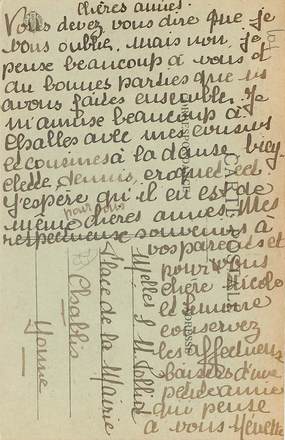 Chères amies.
Vous devez vous dire que je
vous oublie, mais non, je
pense beaucoup à vous et
au bonnes parties que ns
avons faites ensemble. Je
m'amuse beaucoup à
Challes avec mes cousins
et cousines à la danse bicy-
clette tennis, croquet ect.
J'espère qu'il en est de
même pour vous chères amies. Mes
respectueux souvenirs à
vos parents et
pour vous
chère Nicole
et Simone
conservez
les affectueux
baisers d'une
petite amie
qui pense
à vous
CARTE POSTALE
CORRESPONDANCE
ADRESSE
Melles S. M.
Place de la Mairie
Chablis
Yonne